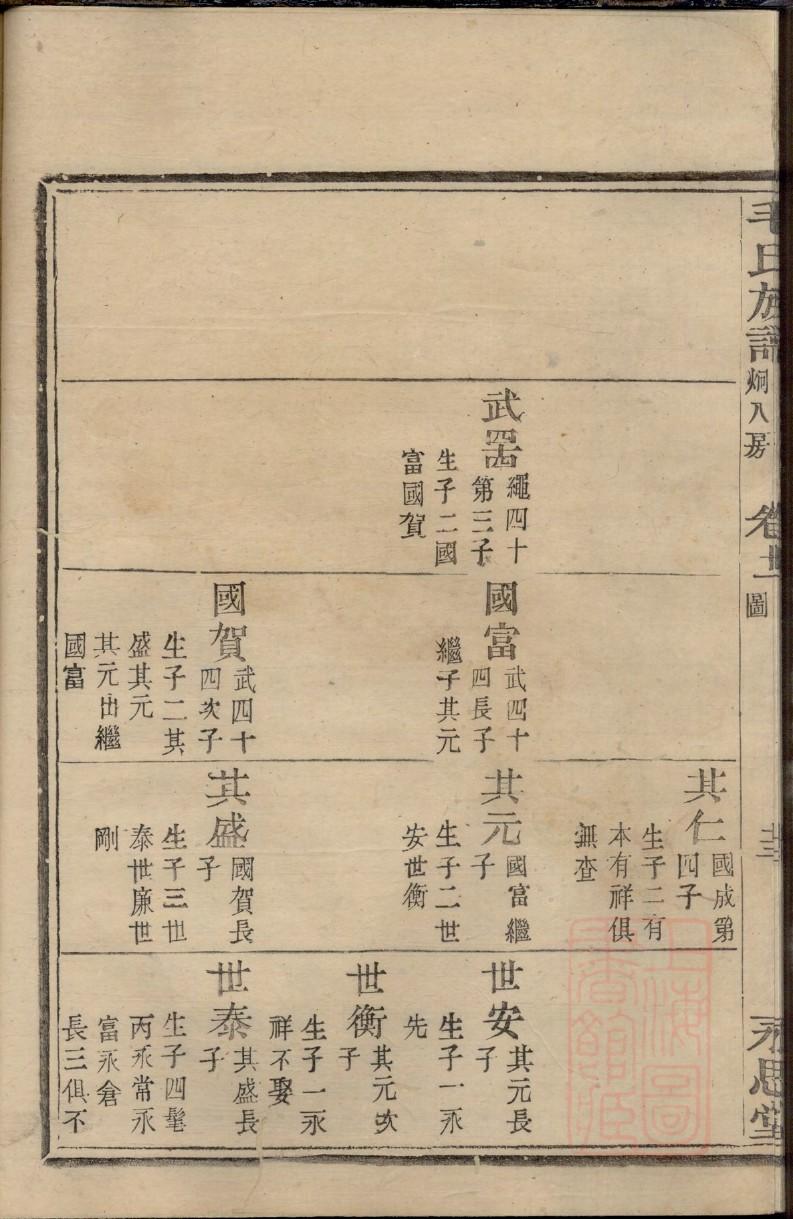 毛氏族譜 炯八房 卷 圖
永思堂
武四十四
繩四十
第三子
生子二國
富國賀
國富
武四十
四長子
繼子其元
國賀
武四十
四次子
生子二其
盛其元
其元出繼
國富
其仁
國成第
四子
生子二有
本有祥俱
無查
其元
國富繼
子
生子二世
安世衡
其盛
國賀長
子
生子三世
泰世廉世
剛
世安
其元長
子
生子一永
先
世衡
其元次
子
生子一永
祥不娶
世泰
其盛長
子
生子四髦
丙永常永
富永倉
長三俱不